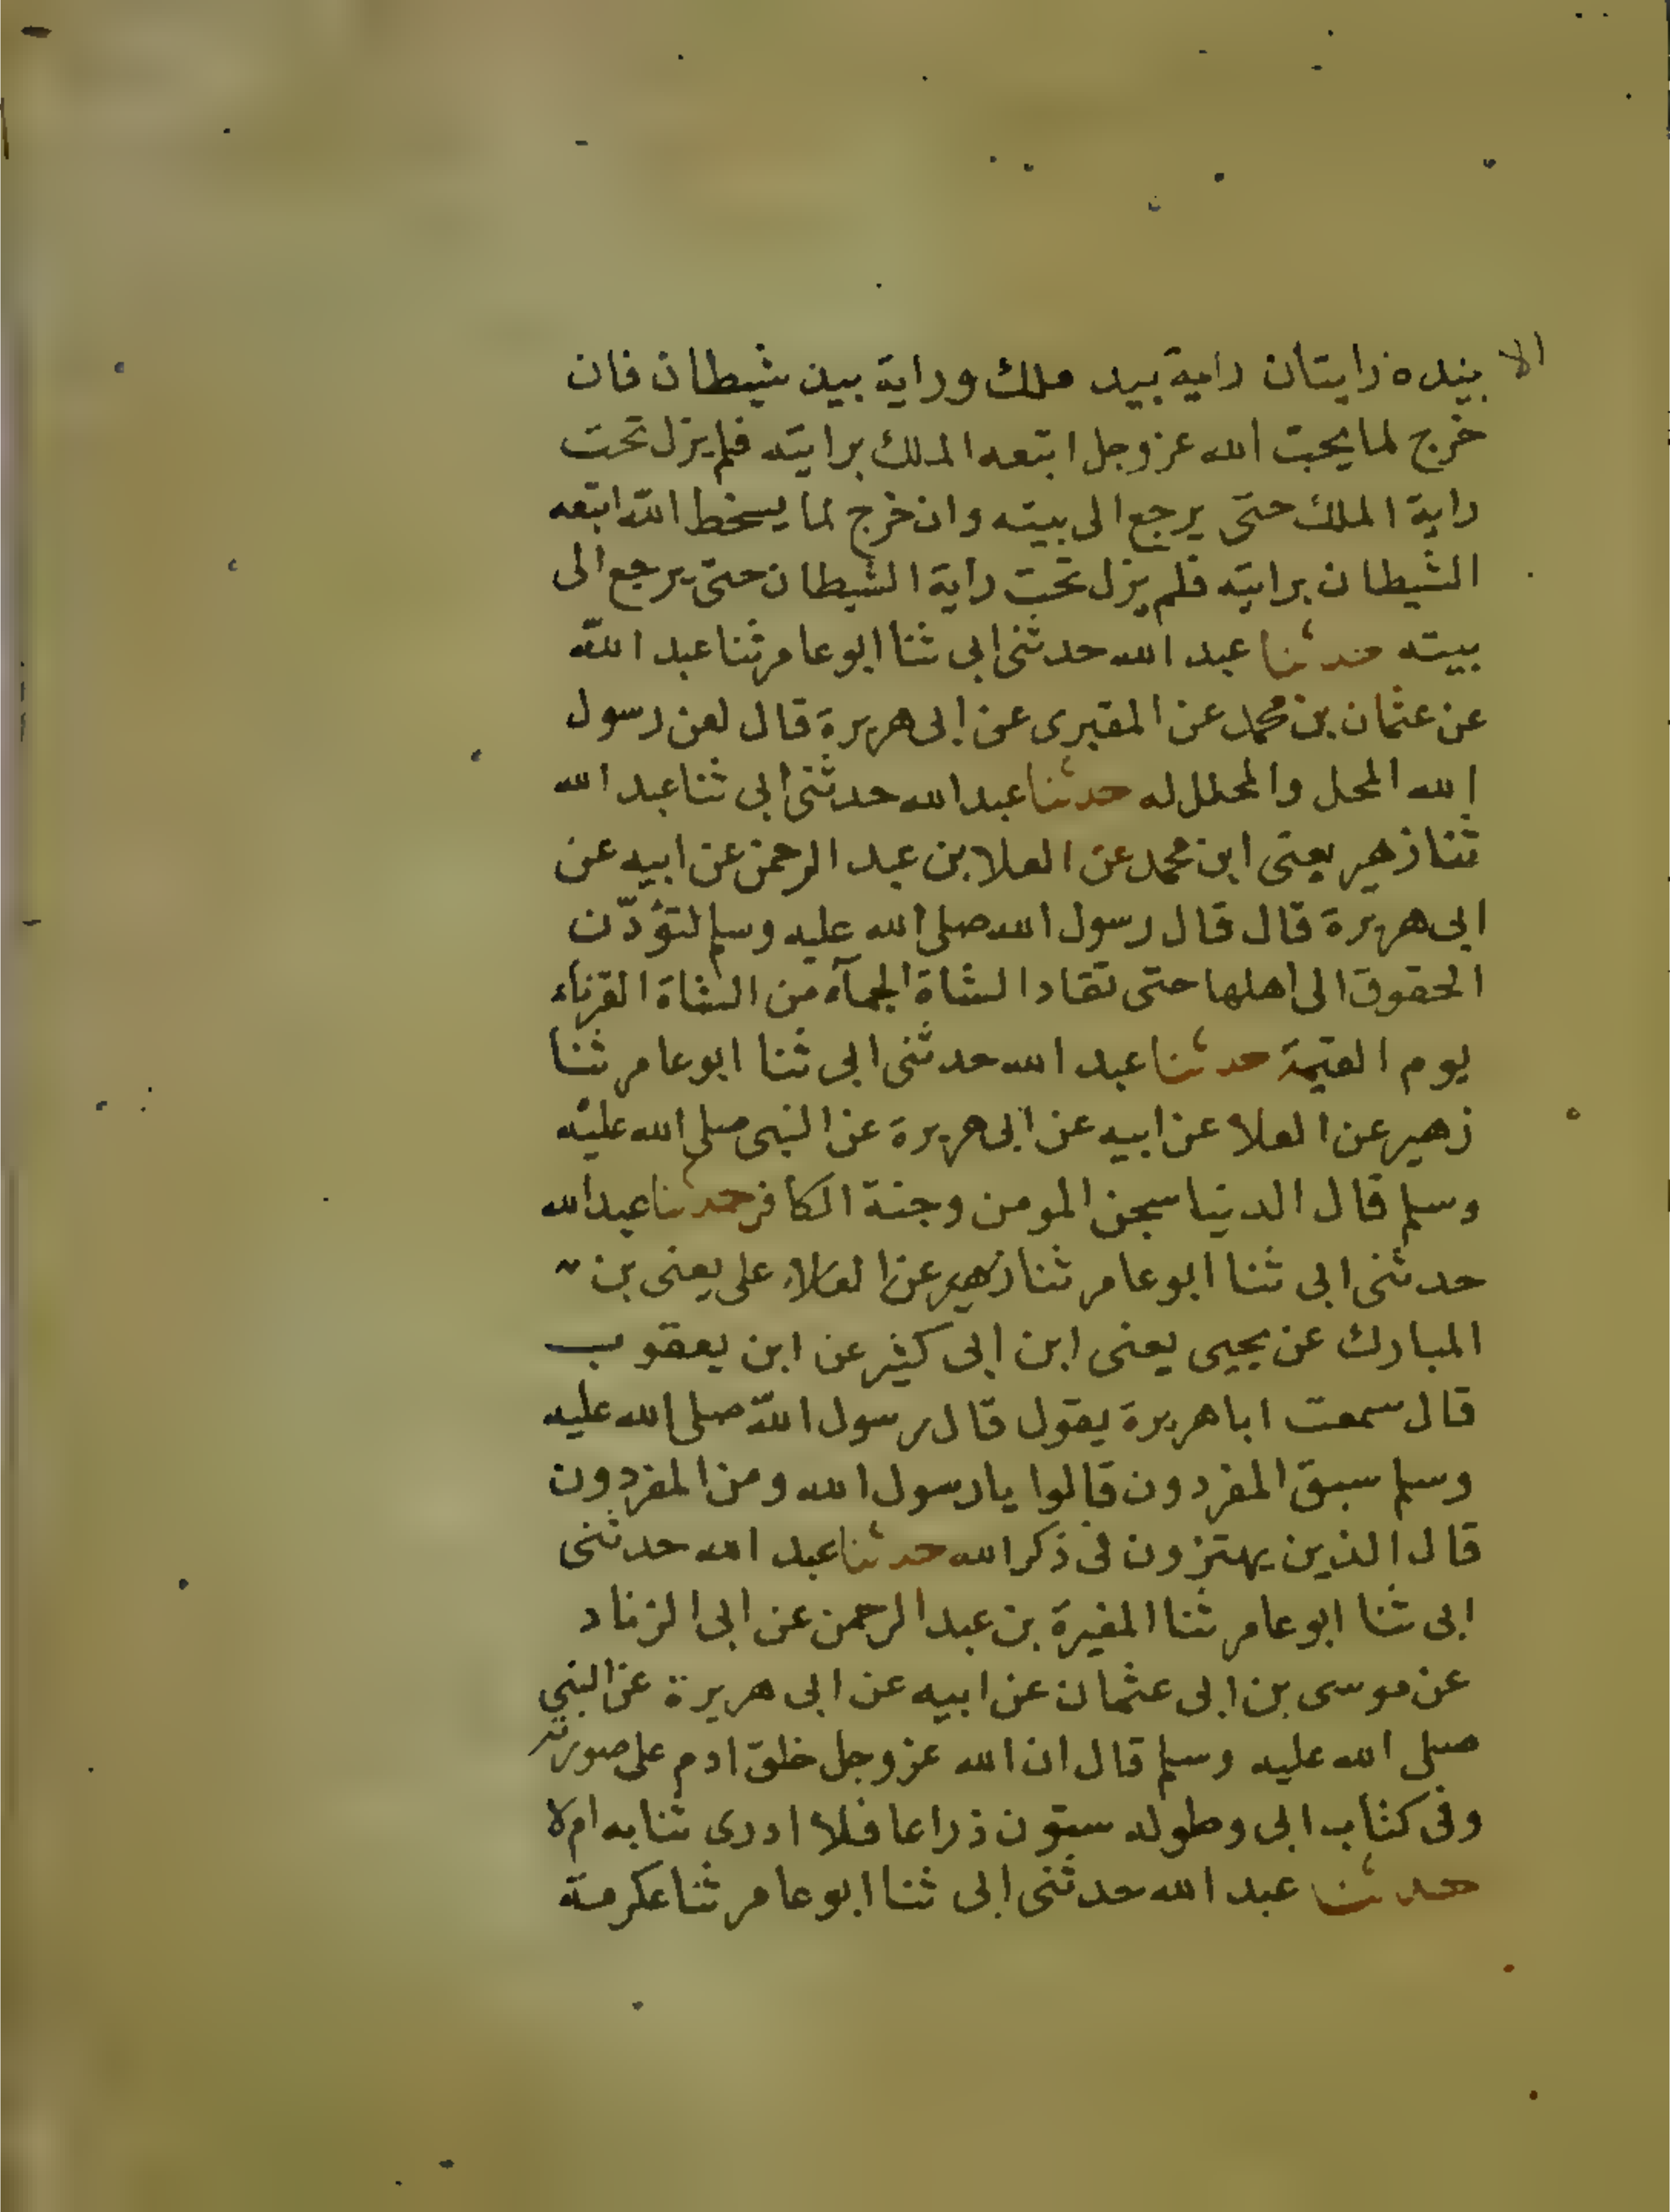 الا بيده رايتان راية بيد ملك وراية بيد شيطان فان
خرج لما يحبت الله عز وجل اتبعه الملك برايته فلم يزل تحت
راية الملك حتى يرجع الى بيته وان خرج لما يسخط الله اتبعه
الشيطان برايته فلم يزل تحت راية الشيطان حتى يرجع الى
بيته حدثنا عبد الله حدثنى ابى ثنا ابو عامر ثنا عبد الله
عن عثمان بن محمد عن المقبرى عن ابى هريرة قال لعن رسول
الله المحل والمحلل له حدثنا عبد الله حدثنى ابى ثنا عبد الله
ثنا زهير يعنى ابن محمد عن العلا بن عبد الرحمن عن ابيه عن
ابى هريرة قال قال رسول الله صلى الله عليه وسلم لتؤدّن
الحقوق الى اهلها حتى تقاد الشاة الجمآء من الشاة القرناء
يوم القيمة حدثنا عبد الله حدثنى ابى ثنا ابو عامر ثنا
زهير عن العلا عن ابيه عن ابى هريرة عن النبى صلى الله عليه
وسلم قال الدنيا سجن المومن وجنة الكافر حدثنا عبد الله
حدثنى ابى ثنا ابو عامر ثنا زهير عن العلاء على يعنى بن
المبارك عن يحيى يعنى ابن ابى كثير عن ابن يعقوب
قال سمعت ابا هريرة يقول قال رسول الله صلى الله عليه
وسلم سبق المفردون قالوا يا رسول الله ومن المفردون
قال الذين يهتزون فى ذكر الله حدثنا عبد الله حدثنى
ابى ثنا ابو عامر ثنا المغيرة بن عبد الرحمن عن ابى الزناد
عن موسى بن ابى عثمان عن ابيه عن ابى هريرة عن النبي
صلى الله عليه وسلم قال ان الله عز وجل خلق ادم على صورته
وفى كتاب ابى وطوله ستون ذراعا فلا ادرى ثنا به ام لا
حدثنا عبد الله حدثنى ابى ثنا ابو عامر ثنا عكرمة